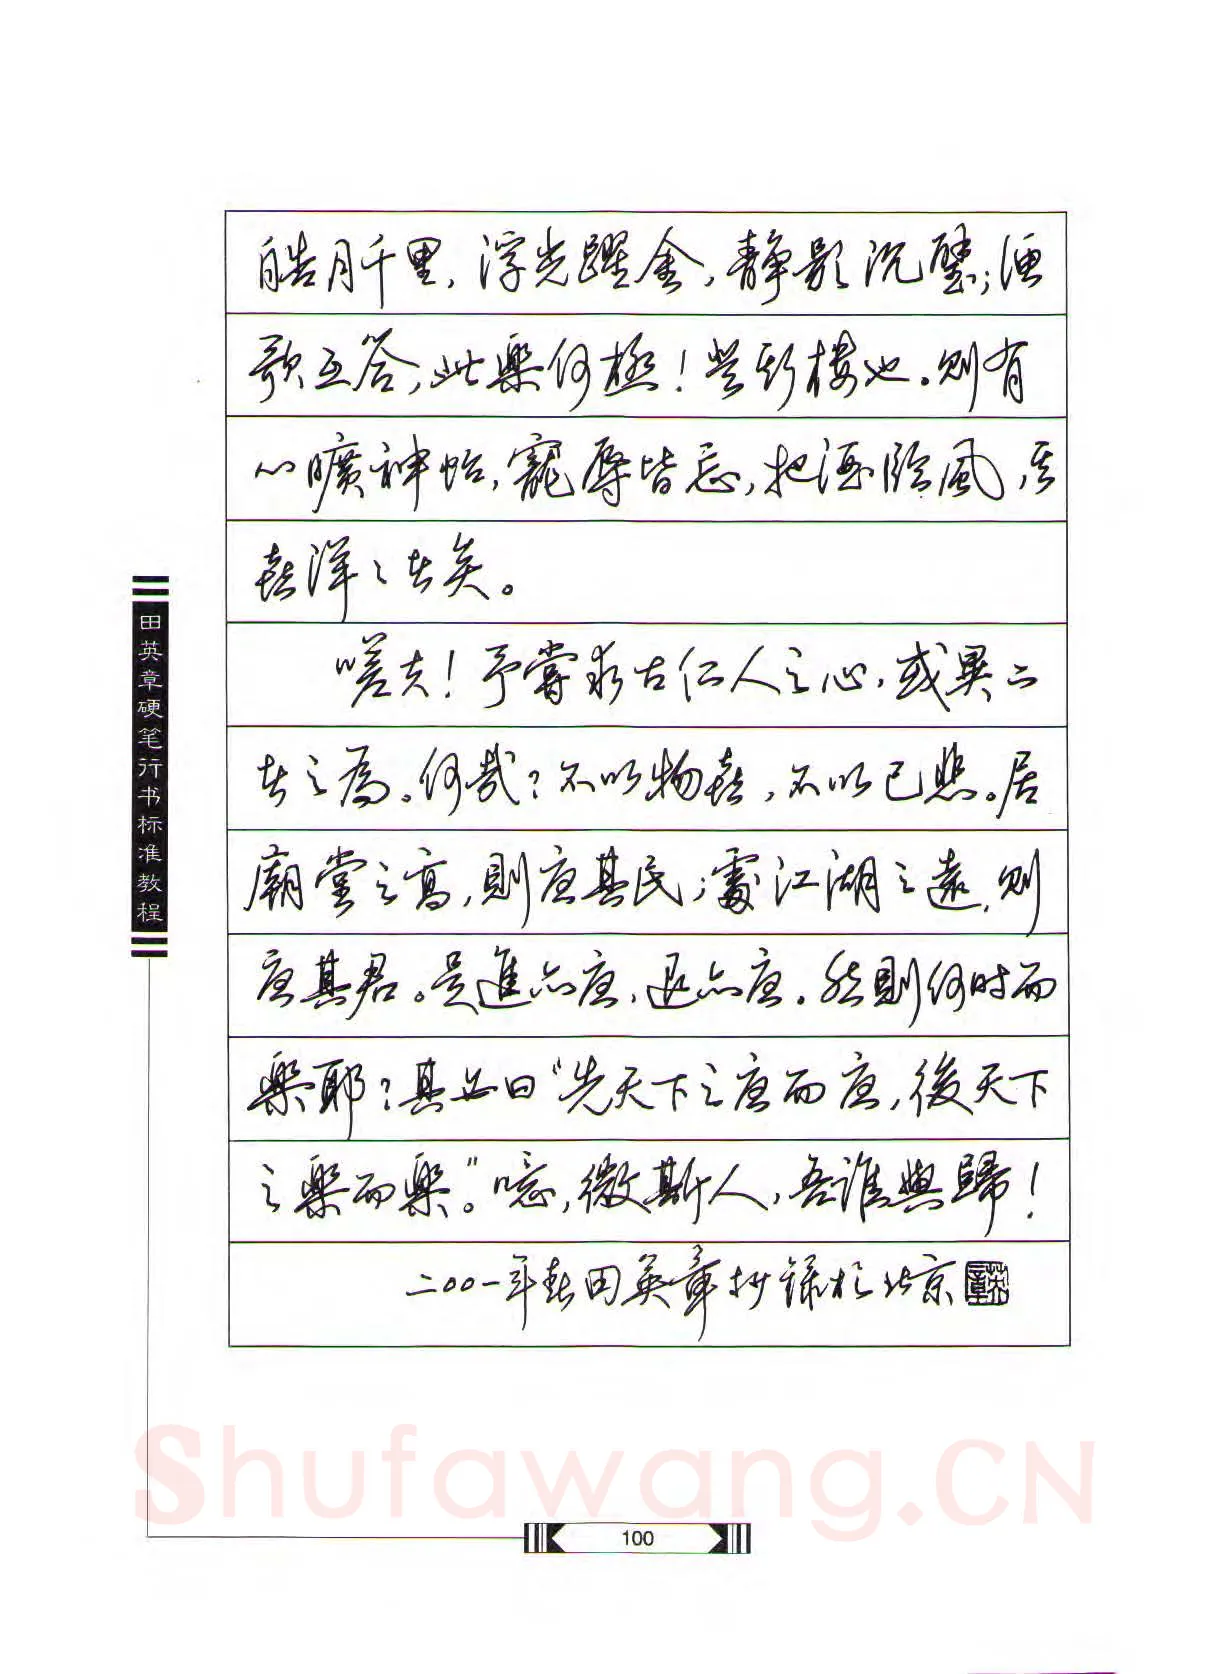 皓月千里，浮光躍金，静影沉璧；漁
歌互答，此樂何極！登斯樓也。則有
心曠神怡，寵辱皆忘，把酒臨風，其
喜洋〻者矣。
嗟夫！予嘗求古仁人之心，或異二
者之為。何哉？不以物喜，不以己悲。居
廟堂之高，則憂其民；處江湖之遠，則
憂其君。是進亦憂，退亦憂。然則何时而
樂耶？其必曰“先天下之憂而憂，後天下
之樂而樂。”噫，微斯人，吾誰與歸！
二〇〇一年春田英章抄録於北京
英章
田英章硬笔行书标准教程
Shufawang.CN
100